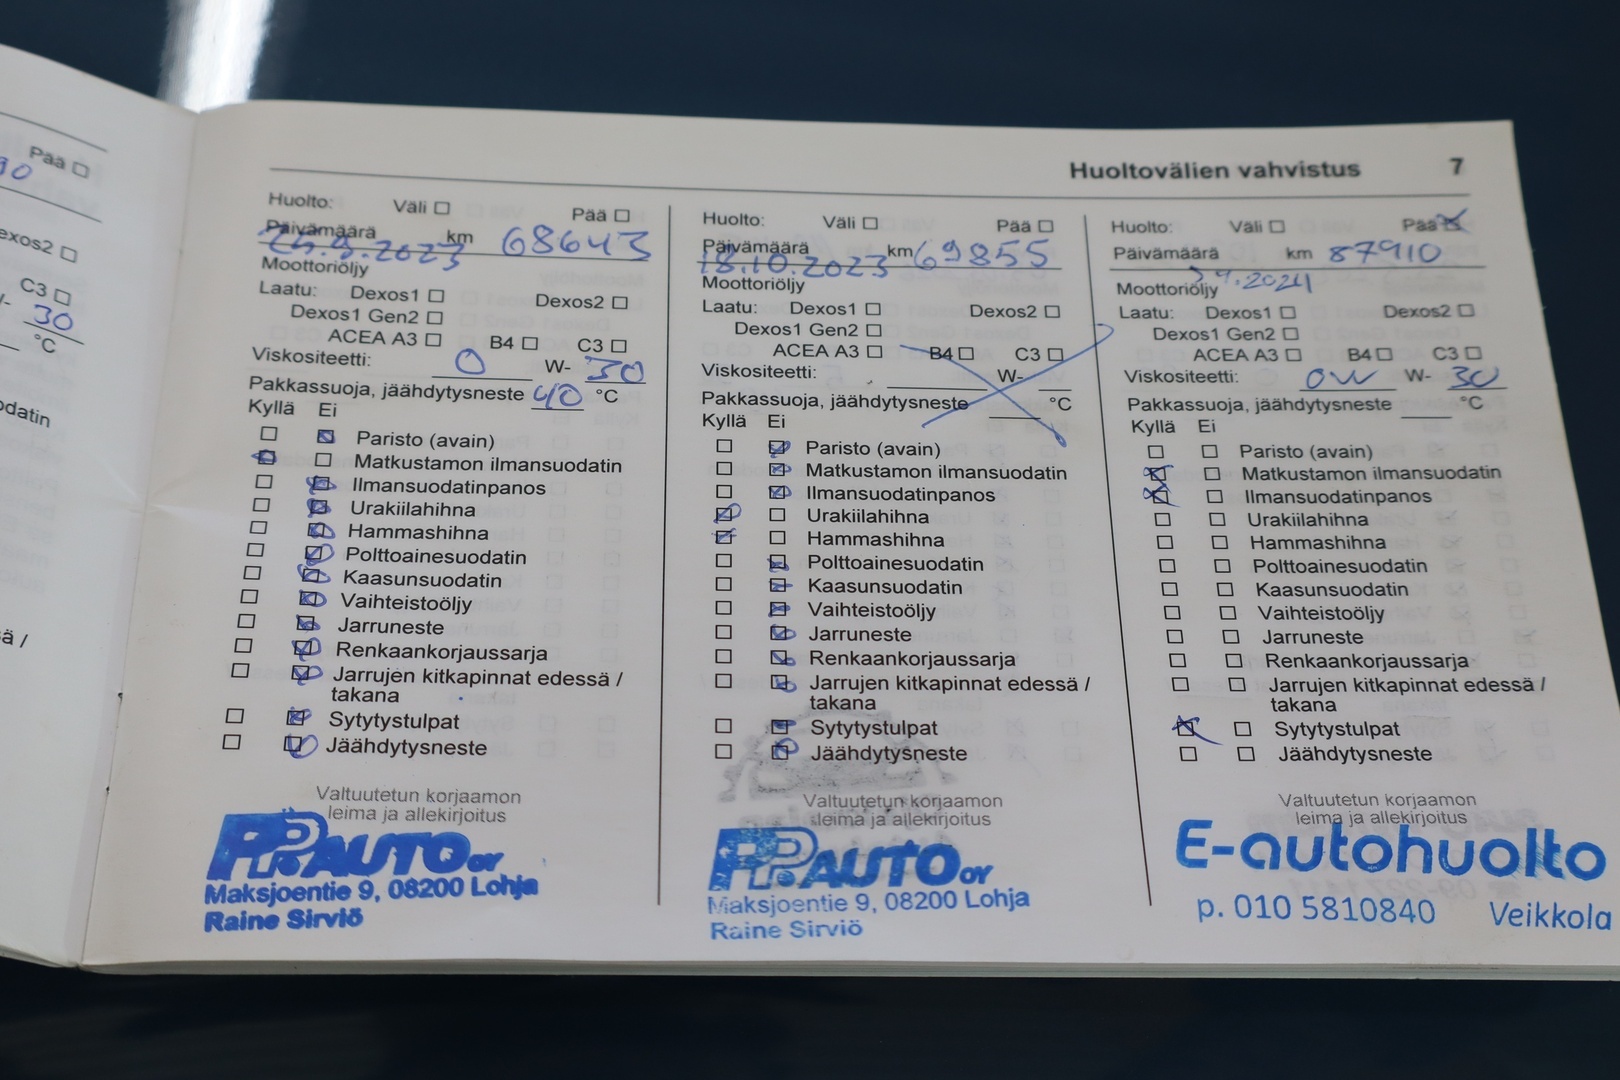 Pää ☐
90
exos2 ☐
C3 ☐
30
°C
odatin
sä /
Huoltovälien vahvistus 7
Huolto: Väli ☐ Pää ☐
Päivämäärä km 68643
25.9.2023
Moottoriöljy
Laatu: Dexos1 ☐ Dexos2 ☐
Dexos1 Gen2 ☐
ACEA A3 ☐ B4 ☐ C3 ☐
Viskositeetti: 0 W- 30
Pakkassuoja, jäähdytysneste 40 °C
Kyllä Ei
☐ ☒ Paristo (avain)
☒ ☐ Matkustamon ilmansuodatin
☐ ☒ Ilmansuodatinpanos
☐ ☒ Urakiilahihna
☐ ☒ Hammashihna
☐ ☒ Polttoainesuodatin
☐ ☒ Kaasunsuodatin
☐ ☒ Vaihteistoöljy
☐ ☒ Jarruneste
☐ ☒ Renkaankorjaussarja
☐ ☒ Jarrujen kitkapinnat edessä /
takana
☐ ☒ Sytytystulpat
☐ ☒ Jäähdytysneste
Valtuutetun korjaamon
leima ja allekirjoitus
PP.AUTO OY
Maksjoentie 9, 08200 Lohja
Raine Sirviö
Huolto: Väli ☐ Pää ☐
Päivämäärä km 69855
18.10.2023
Moottoriöljy
Laatu: Dexos1 ☐ Dexos2 ☐
Dexos1 Gen2 ☐
ACEA A3 ☐ B4 ☐ C3 ☐
Viskositeetti: W-
Pakkassuoja, jäähdytysneste °C
Kyllä Ei
☐ ☒ Paristo (avain)
☐ ☒ Matkustamon ilmansuodatin
☐ ☒ Ilmansuodatinpanos
☒ ☐ Urakiilahihna
☒ ☐ Hammashihna
☐ ☒ Polttoainesuodatin
☐ ☒ Kaasunsuodatin
☐ ☒ Vaihteistoöljy
☐ ☒ Jarruneste
☐ ☒ Renkaankorjaussarja
☐ ☒ Jarrujen kitkapinnat edessä /
takana
☐ ☒ Sytytystulpat
☐ ☒ Jäähdytysneste
Valtuutetun korjaamon
leima ja allekirjoitus
PP.AUTO OY
Maksjoentie 9, 08200 Lohja
Raine Sirviö
Huolto: Väli ☐ Pää ☒
Päivämäärä km 87910
.4.2024
Moottoriöljy
Laatu: Dexos1 ☐ Dexos2 ☐
Dexos1 Gen2 ☐
ACEA A3 ☐ B4 ☐ C3 ☐
Viskositeetti: 0W W- 30
Pakkassuoja, jäähdytysneste °C
Kyllä Ei
☐ ☐ Paristo (avain)
☒ ☐ Matkustamon ilmansuodatin
☒ ☐ Ilmansuodatinpanos
☐ ☐ Urakiilahihna
☐ ☐ Hammashihna
☐ ☐ Polttoainesuodatin
☐ ☐ Kaasunsuodatin
☐ ☐ Vaihteistoöljy
☐ ☐ Jarruneste
☐ ☐ Renkaankorjaussarja
☐ ☐ Jarrujen kitkapinnat edessä /
takana
☒ ☐ Sytytystulpat
☐ ☐ Jäähdytysneste
Valtuutetun korjaamon
leima ja allekirjoitus
E-autohuolto
p. 010 5810840 Veikkola